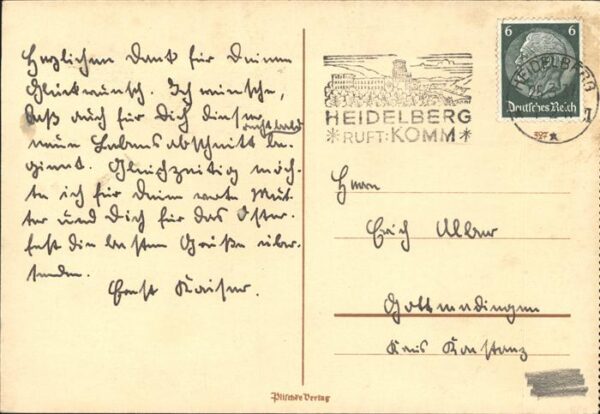 Herzlichen Dank für Deinen
Glückwunsch. Ich wünsche,
daß auch für Dich dieser
recht bald
neue Lebensabschnitt be-
ginnt. Gleichzeitig möch-
te ich für Deine werte Mut-
ter und Dich für das Oster-
fest die besten Grüße über-
senden.
Ernst Kaiser.
HEIDELBERG
RUFT: KOMM
6 6
Deutsches Reich
HEIDELBERG
1
Herrn
Erich Alber
Gottmadingen
Kreis Konstanz
Plischke Verlag